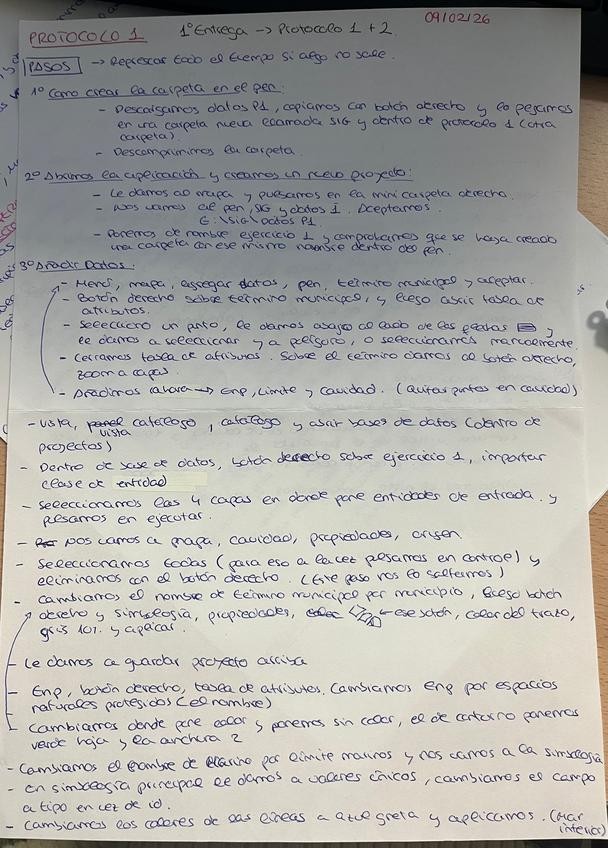 PROTOCOLO 1 1º Entrega → Protocolo 1 + 2 09/02/26
PASOS → Represcar todo el tiempo si algo no sale.
1º Como crear la carpeta en el pen:
- Descargamos datos P1, copiamos con botón derecho y lo pegamos
en una carpeta nueva llamada SIG y dentro de protocolo 1 (otra
carpeta)
- Descomprimimos la carpeta.
2º Abrimos la aplicación y creamos un nuevo proyecto:
- Le damos a mapa y pulsamos en la mini carpeta derecho.
- Nos vamos al pen, SIG y datos 1. Aceptamos.
E:\SIG\Datos P1.
- Ponemos de nombre ejercicio 1 y comprobamos que se haya creado
una carpeta con ese mismo nombre dentro del pen.
3º Añadir Datos:
- Menú, mapa, agregar datos, pen, término municipal y aceptar.
- Botón derecho sobre término municipal, y luego abrir tabla de
atributos.
- Selecciono un punto, le damos abajo al lado de las flechas y
le damos a seleccionar y a polígono, o seleccionamos manualmente.
- Cerramos tabla de atributos. Sobre el término damos al botón derecho,
zoom a capas.
- Añadimos ahora → Enp, Límite y cavidad. (Quitar puntos en cavidad)
- Vista, panel catálogo, catálogo y abrir bases de datos (dentro de
vista
proyectos)
- Dentro de base de datos, botón derecho sobre ejercicio 1, importar
clase de entidad
- Seleccionamos las 4 capas en donde pone entidades de entrada y
pulsamos en ejecutar.
- Nos vamos a mapa, cavidad, propiedades, origen.
- Seleccionamos todas (para eso a la vez pulsamos en control) y
eliminamos con el botón derecho. (Este paso nos lo saltemos)
- Cambiamos el nombre de término municipal por municipio, luego botón
derecho y simbología, propiedades, ← ese botón, color del trazo,
gris 10%. y aplicar.
- Le damos a guardar proyecto arriba
- Enp, botón derecho, tabla de atributos. Cambiamos Enp por espacios
naturales protegidos (el nombre)
- Cambiamos donde pone color y ponemos sin color, el de contorno ponemos
verde hoja y la anchura 2
- Cambiamos el nombre de marino por límite marinos y nos vamos a la simbología
- en simbología principal le damos a valores únicos, cambiamos el campo
a tipo en vez de id.
- Cambiamos los colores de las líneas a azul greta y aplicamos. (Mar
interior)